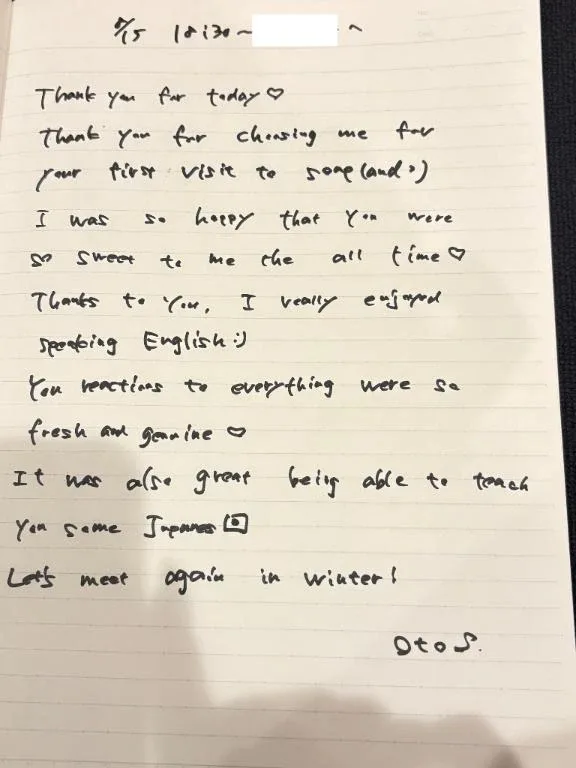 8/15 18:30~ ~
Thank you for today♡
Thank you for choosing me for
your first visit to soapland :)
I was so happy that you were
so sweet to me the all time♡
Thanks to you, I really enjoyed
speaking English :)
You reactions to everything were so
fresh and genuine ♡
It was also great being able to teach
you some Japanese
Let's meet again in winter!